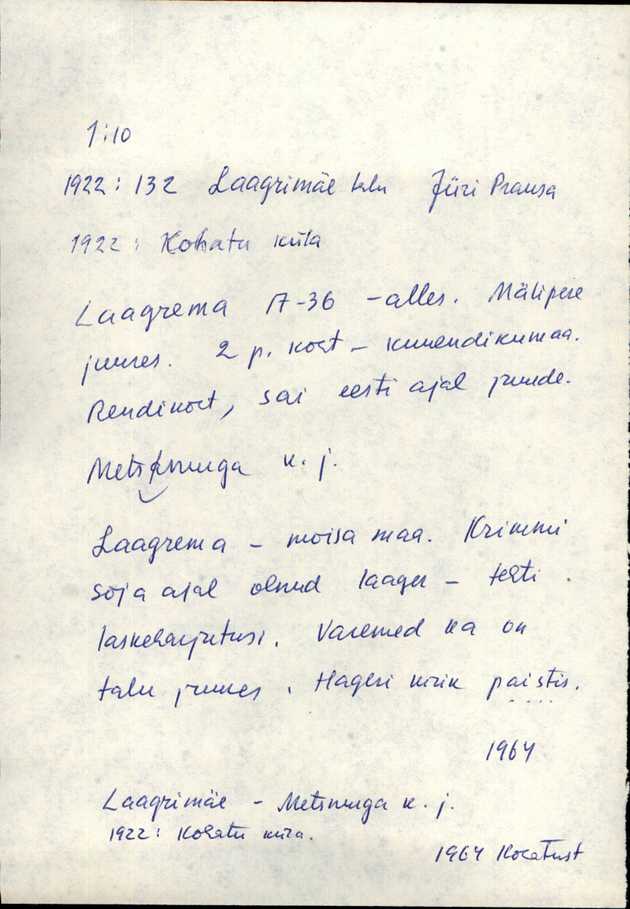 1:10
1922: 132 Laagrimäe talu Jüri Prausa
1922: Kohatu küla
Laagrema A-36 - alles. Mälipere
juures. 2 p. koht - kuuendikumaa.
Rendikoht, sai eesti ajal juurde.
Metsnuuga k. j.
Laagrema - moisa maa. Krimmi
sõja ajal olnud laager - tehti
laskeharjutusi. Varemed ka on
talu juures. Hageri kirik paistis.
1964
Laagrimäe - Metsnuuga k. j.
1922: Kohatu küla.
1964 Kohatust